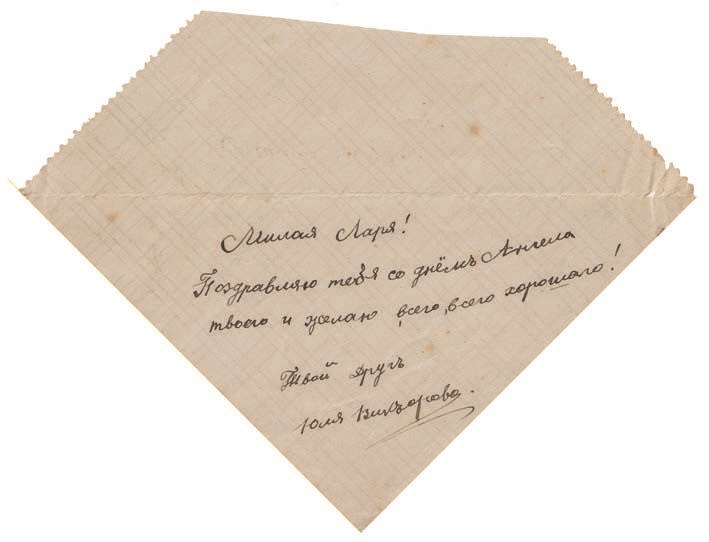 Милая Ларя!
Поздравляю тебя со днёмъ Ангела
твоего и желаю всего, всего хорошаго!
Твой другъ
Юля